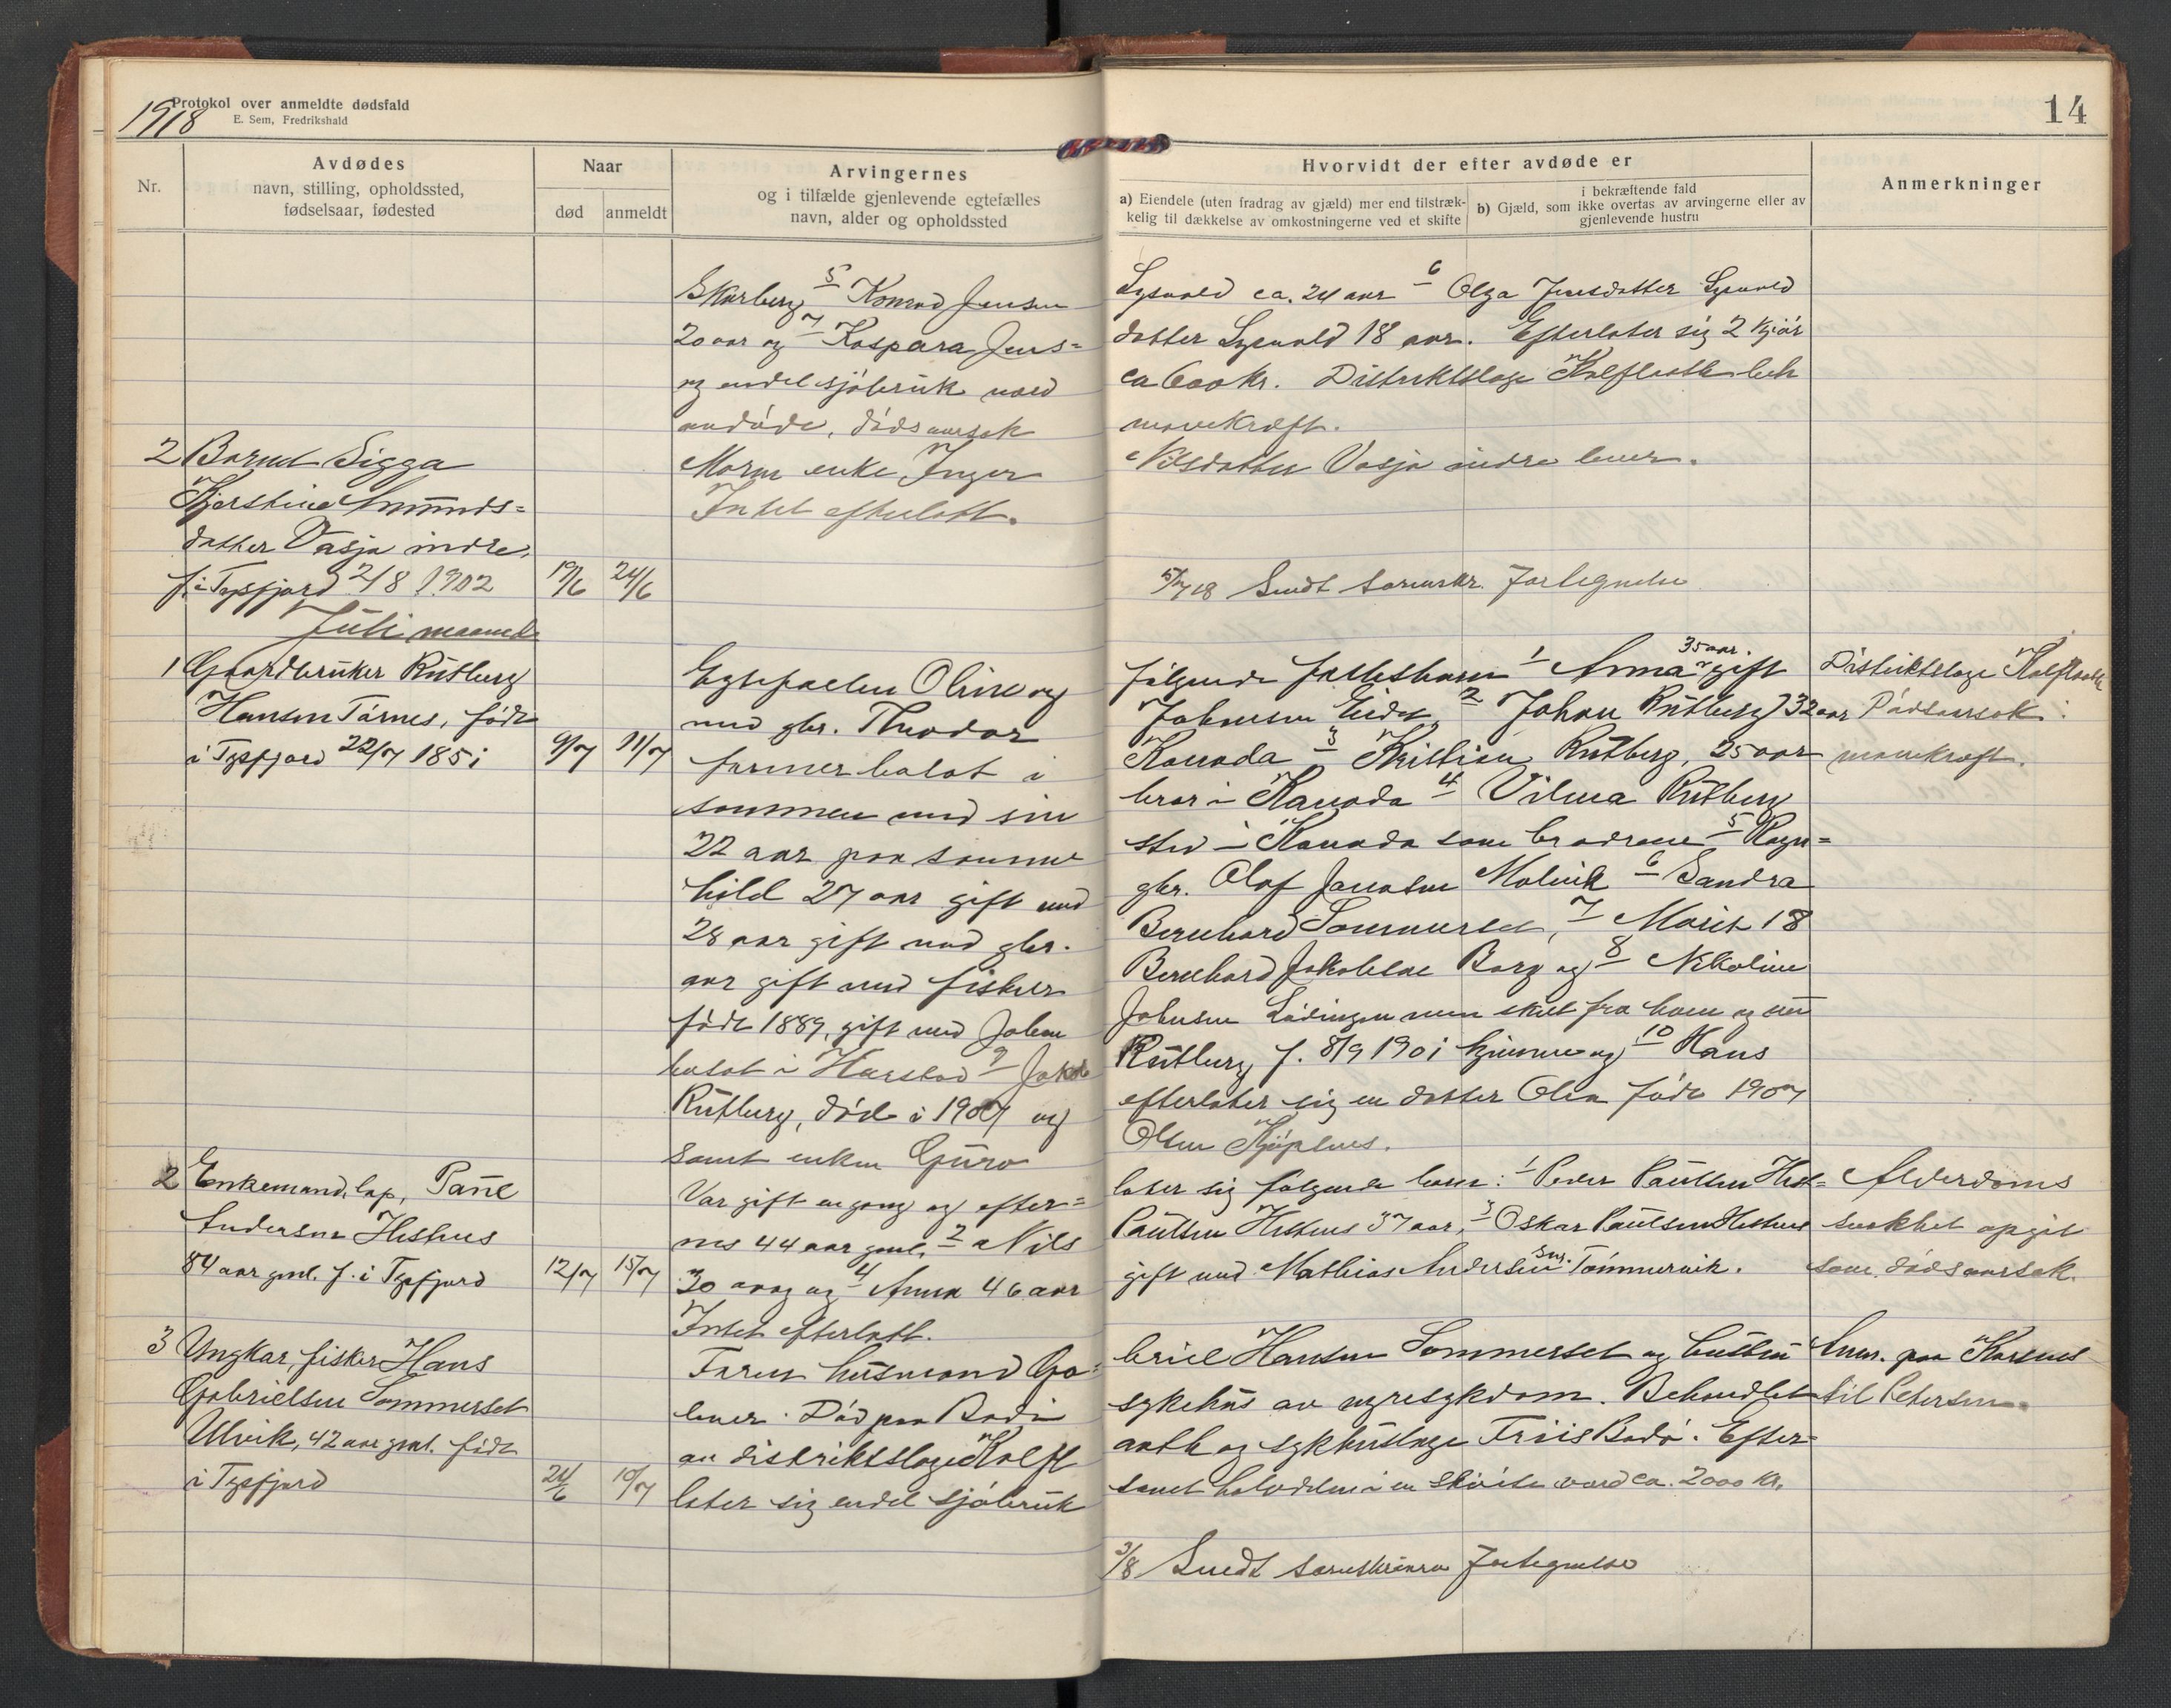 1918
Protokol over anmeldte dødsfald
E. Sem, Fredrikshald
14
Nr.
Avdødes
navn, stilling, opholdssted,
fødselsaar, fødested
Naar
død
anmeldt
Arvingernes
og i tilfælde gjenlevende egtefælles
navn, alder og opholdssted
Hvorvidt der efter avdøde er
a) Eiendele (uten fradrag av gjæld) mer end tilstræk-
kelig til dækkelse av omkostningerne ved et skifte
i bekræftende fald
b) Gjæld, som ikke overtas av arvingerne eller av
gjenlevende hustru
Anmerkninger
Skarberg 5 Konrad Jensen Lysvold ca. 24 aar 6 Olga Jensdatter Lysvold
20 aar og 7 Kaspara Jens= datter Lysvold 18 aar. Efterlater sig 2 kjør
og endel sjøbruk værd ca 600 kr. Distriktslæge Kolflaath beh
avdøde, dødsaarsak marvkræft.
2 Barnet Sigga Moren enke Inger Nilsdatter Vasja indre lever.
Kjerstine Amunds= Intet efterlatt.
datter Vasja indre,
f. i Tysfjord 2/8 1902 19/6 24/6 5/7 18 Sendt sorenskr. Fortegnelse
Juli maaned
1 Gaardbruker Rutberg Egtefællen Oline og følgende fællesbarn 1 Anna 35 aar gift Distriktslæge Kolflaath
Hansen Tårnes, født med gbr. Theodor Johansen Eidet, 2 Johan Rutberg 32 aar Dødsaarsak:
i Tysfjord 22/7 1851 9/7 11/7 farmer bosat i Kanada 3 Kristian Rutberg, 25 aar mavekræft.
sammen med sin bror i Kanada 4 Vilma Rutberg
22 aar paa samme sted i Kanada som brødrene 5 Ragn=
hild 27 aar gift med gbr. Olaf Jacobsen Molvik 6 Sandra
28 aar gift med gbr. Bernhard Sommerset, 7 Marit 18
aar gift med fisker Bernhard Jakobsen Borg og 8 Nikoline
født 1889, gift med Johan Johnsen Lødingen men skilt fra ham og nu
bosat i Harstad 9 Jakob Rutberg f. 8/9 1901 hjemme og 10 Hans
Rutberg, død i 1907 og efterlater sig en datter Olea født 1907
samt enken Guro Olsen Kjøpsnes.
2 Enkemand, lap, Paul Var gift engang og efter= later sig følgende barn: 1 Peder Paulsen Hest= Alderdoms
Andersen Hestnes nes 44 aar gml. 2 Nils Paulsen Hestnes 37 aar, 3 Oskar Paulsen Hestnes svakhet opgit
84 aar gml. f. i Tysfjord 12/7 15/7 30 aar og 4 Anna 46 aar gift med Mathias Andersen Tømmervik. som dødsaarsak.
Intet efterlatt.
3 Ungkar, fisker Hans Faren husmand Ga= briel Hansen Sommerset og hustru Anm. paa Korsnes
Gabrielsen Sommerset lever. Død paa Bodø sykehus av nyresykdom. Behandlet til Petersen.
Ulvik, 42 aar gml. født av distriktslæge Kolfl aath og sykhuslæge Friis Bodø. Efter=
i Tysfjord 24/6 10/7 later sig endel sjøbruk samt halvdelen i en skøite værd ca. 2000 kr.
3/8 Sendt sorenskriveren Fortegnelse